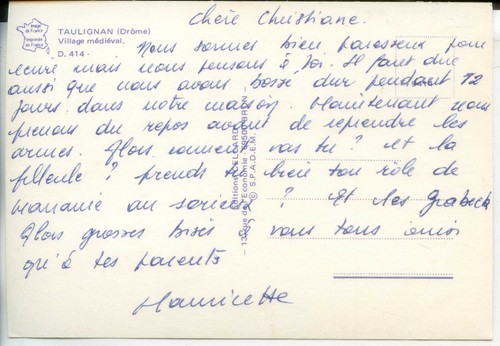 Chère Christiane.
Image de France
Imprimée en France
TAULIGNAN (Drôme)
Village médiéval.
D. 414 -
Nous sommes bien paresseux pour
écrire mais nous pensons à toi. Il faut dire
aussi que nous avons bossé dur pendant 12
jours dans notre maison. Maintenant nous
prenons du repos avant de reprendre les
armes. Alors comment vas tu ? et la
filleule ? prends tu bien ton rôle de
mamanie au sérieux ? Et les
Alors grosses bises à vous tous ainsi
qu'à tes parents
Mauricette
© S.P.A.D.E.M.